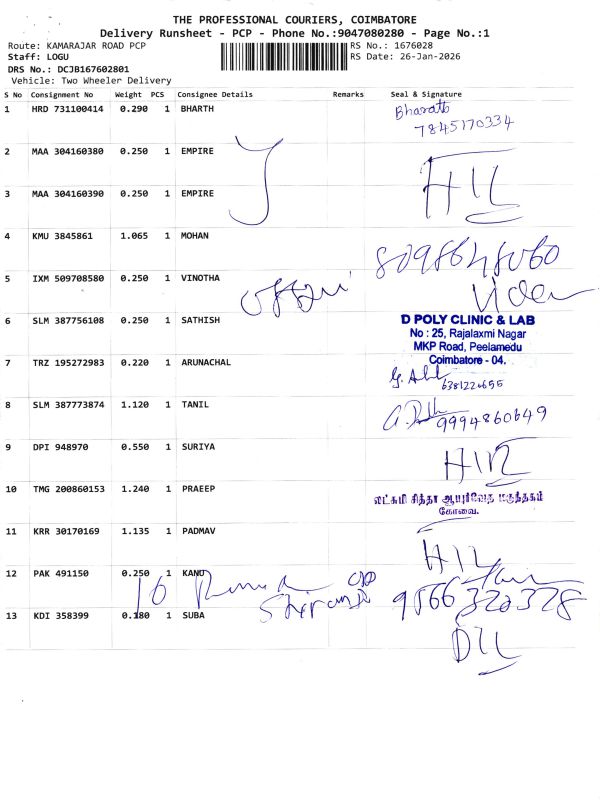 THE PROFESSIONAL COURIERS, COIMBATORE
Delivery Runsheet - PCP - Phone No.:9047080280 - Page No.:1
Route: KAMARAJAR ROAD PCP
RS No.: 1676028
Staff: LOGU
RS Date: 26-Jan-2026
DRS No.: DCJB167602801
Vehicle: Two Wheeler Delivery
S No Consignment No Weight PCS Consignee Details Remarks Seal & Signature
1 HRD 731100414 0.290 1 BHARTH
Bharath
7845170334
2 MAA 304160380 0.250 1 EMPIRE
3 MAA 304160390 0.250 1 EMPIRE
4 KMU 3845861 1.065 1 MOHAN
8098648060
5 IXM 509708580 0.250 1 VINOTHA
6 SLM 387756108 0.250 1 SATHISH
D POLY CLINIC & LAB
No : 25, Rajalaxmi Nagar
MKP Road, Peelamedu
Coimbatore - 04.
7 TRZ 195272983 0.220 1 ARUNACHAL
6381224655
8 SLM 387773874 1.120 1 TANIL
9994860649
9 DPI 948970 0.550 1 SURIYA
10 TMG 200860153 1.240 1 PRAEEP
லட்சுமி சித்தா ஆயுர்வேத மருந்தகம்
கோவை.
11 KRR 30170169 1.135 1 PADMAV
12 PAK 491150 0.250 1 KANU
9566320328
13 KDI 358399 0.180 1 SUBA